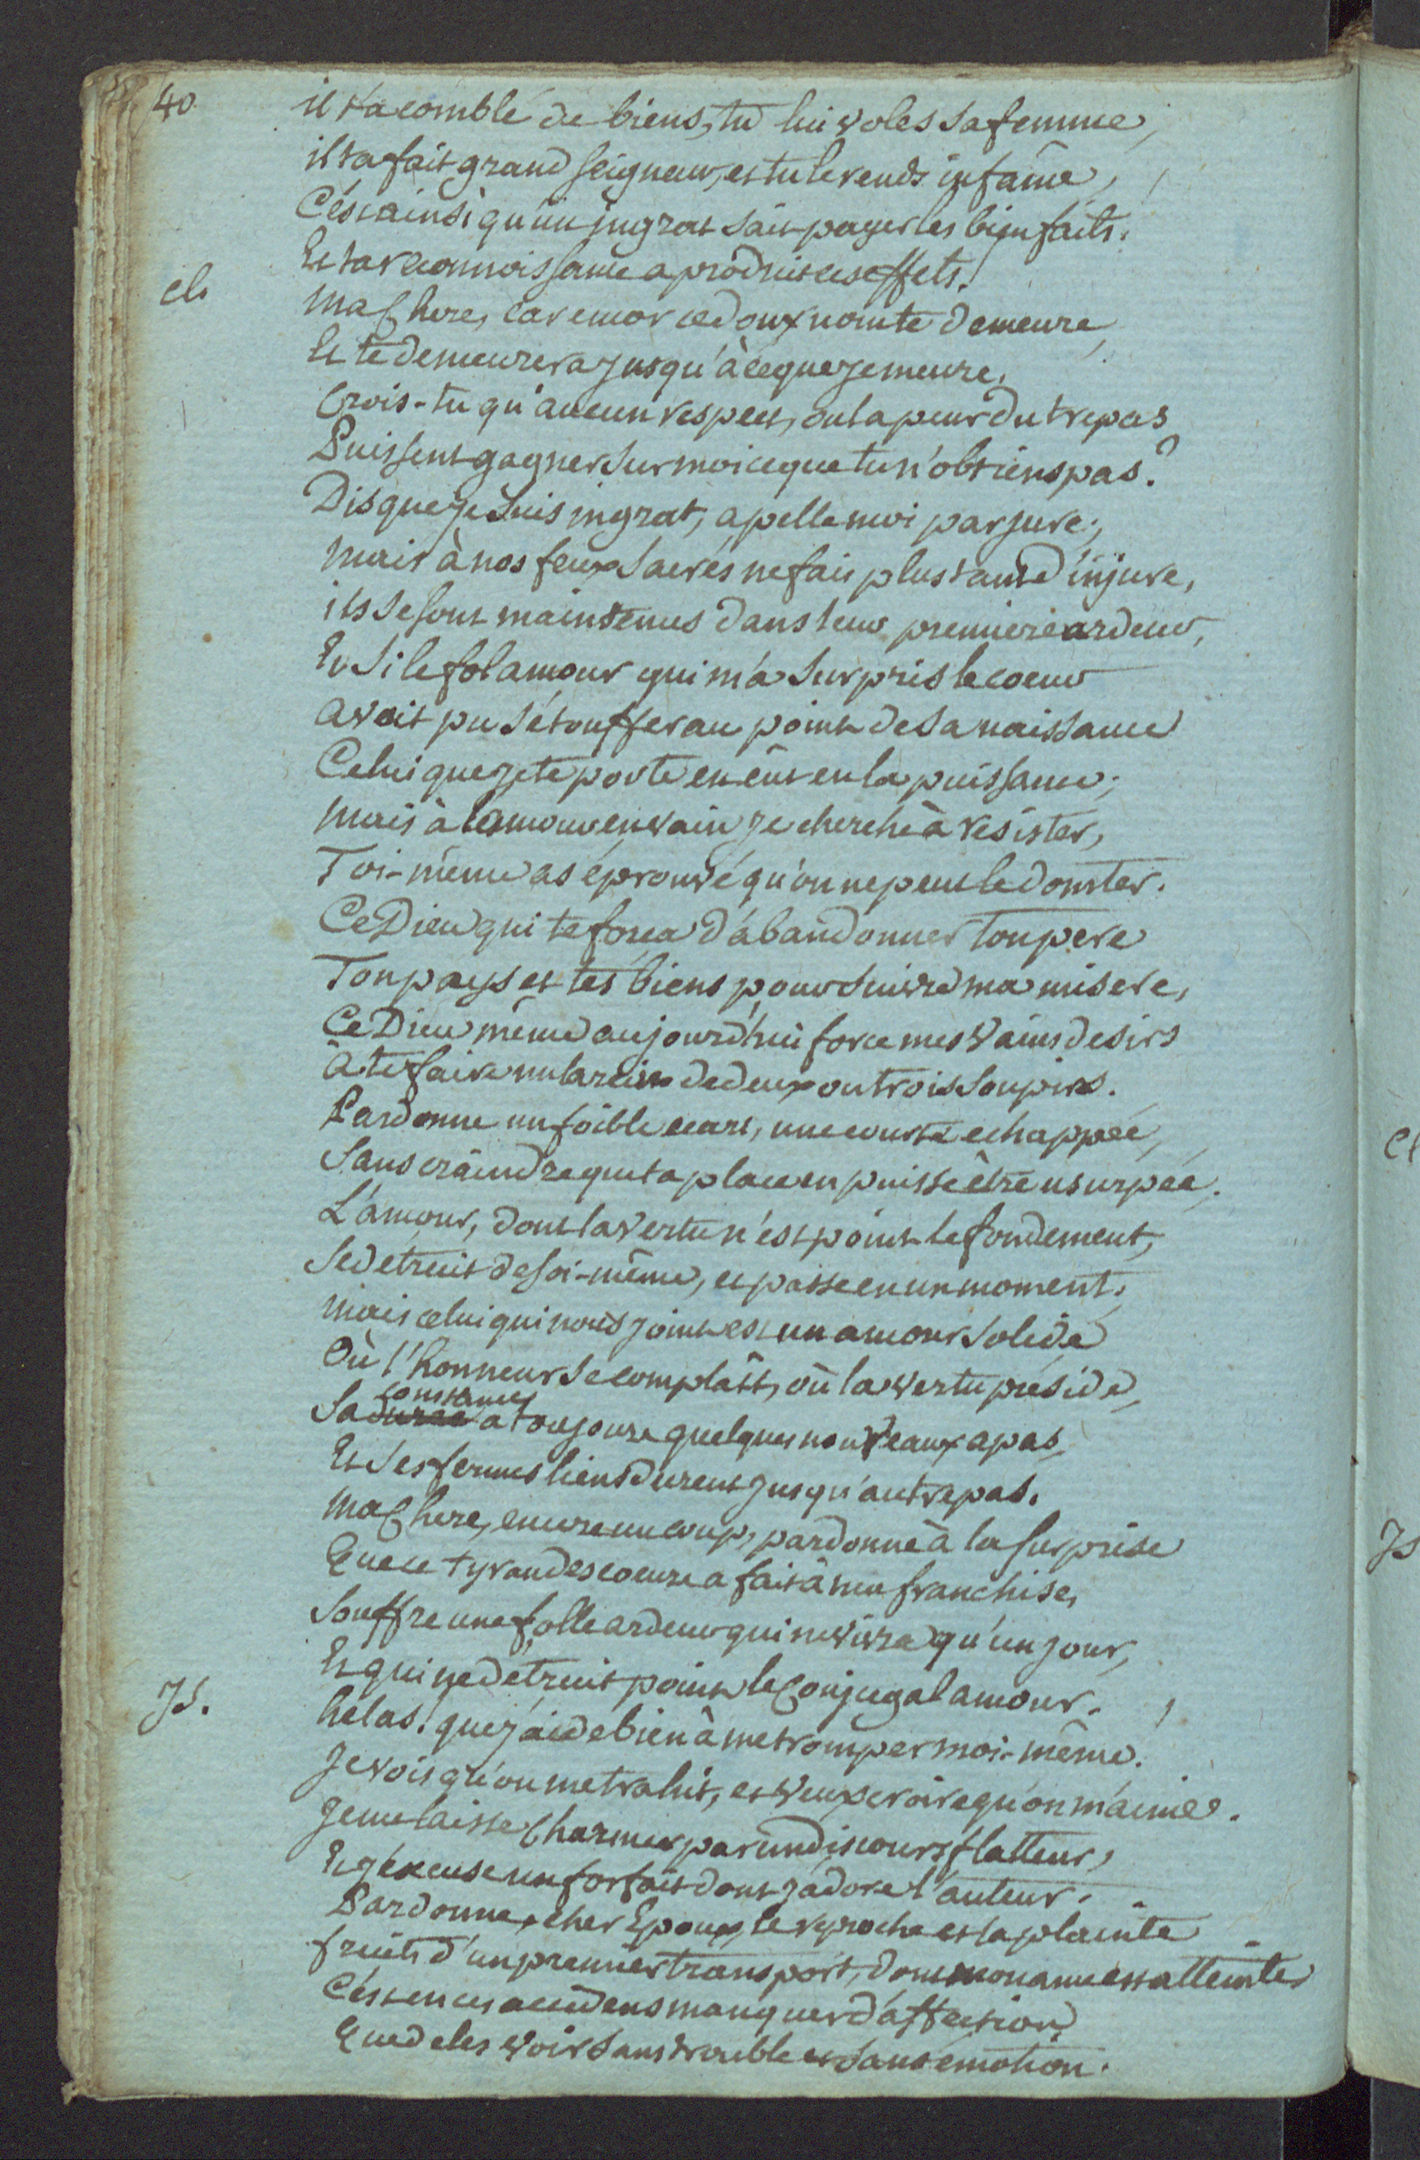 40
il t'a comblé de biens, tu lui voles sa femme,
il t'a fait grand seigneur, et tu le rends infâme,
C'est ainsi qu'un ingrat sait payer les bienfaits.
Et ta reconnoissance a produit ces effets.
cl. Ma Chere, car encor ce doux nom te demeure,
Et te demeurera jusqu'à ce que je meure,
Crois-tu qu'aucun respect, ou la peur du trepas
Puissent gagner sur moi ce que tu n'obtiens pas?
Dis que je suis ingrat, apelle moi parjure;
Mais à nos feux sacrés ne fais plus tant d'injure,
ils se sont maintenus dans leur premiere ardeur,
Et si le fol amour qui m'a surpris le coeur
avait pu s'étouffer au point de sa naissance
Celui que je te porte en eût eu la puissance;
Mais à l'amour en vain je cherche à resister,
Toi-même as éprouvé qu'on ne peut le domter.
Ce Dieu qui te força d'abandonner ton pere
Ton pays et tes biens pour suivre ma misere,
Ce Dieu même aujourd'hui force mes vains desirs
à te faire un larcin de deux ou trois soupirs.
Pardonne un foible ecart, une courte echappée,
Sans craindre que ta place en puisse être usurpée.
L'amour, dont la vertu n'est point le fondement,
Se detruit de soi-même, et passe en un moment;
Mais celui qui nous joint est un amour solide
Où l'honneur se complâit, où la vertu préside,
constance
Sa durée a toujours quelques nouveaux apas,
Et ses fermes liens durent jusqu'au trepas.
Ma Chere, encore un coup, pardonne à la surprise
Que ce tyran des coeurs a fait à ma franchise,
Souffre une folle ardeur qui ne vivra qu'un jour,
Et qui ne détruit point le Conjugal amour.
Js. helas! que j'ai de bien à me tromper moi-même.
Je vois qu'on me trahit, et veux croire qu'on m'aime.
Je me laisse Charmer par un discours flatteur,
Et j'excuse un forfait dont j'adore l'auteur.
Pardonne, cher Epoux, le reproche et la plainte
fruits d'un premier transport, dont mon ame est atteinte
C'est en ces accidens manquer d'affection,
Que de les voir sans trouble et sans émotion.
Js